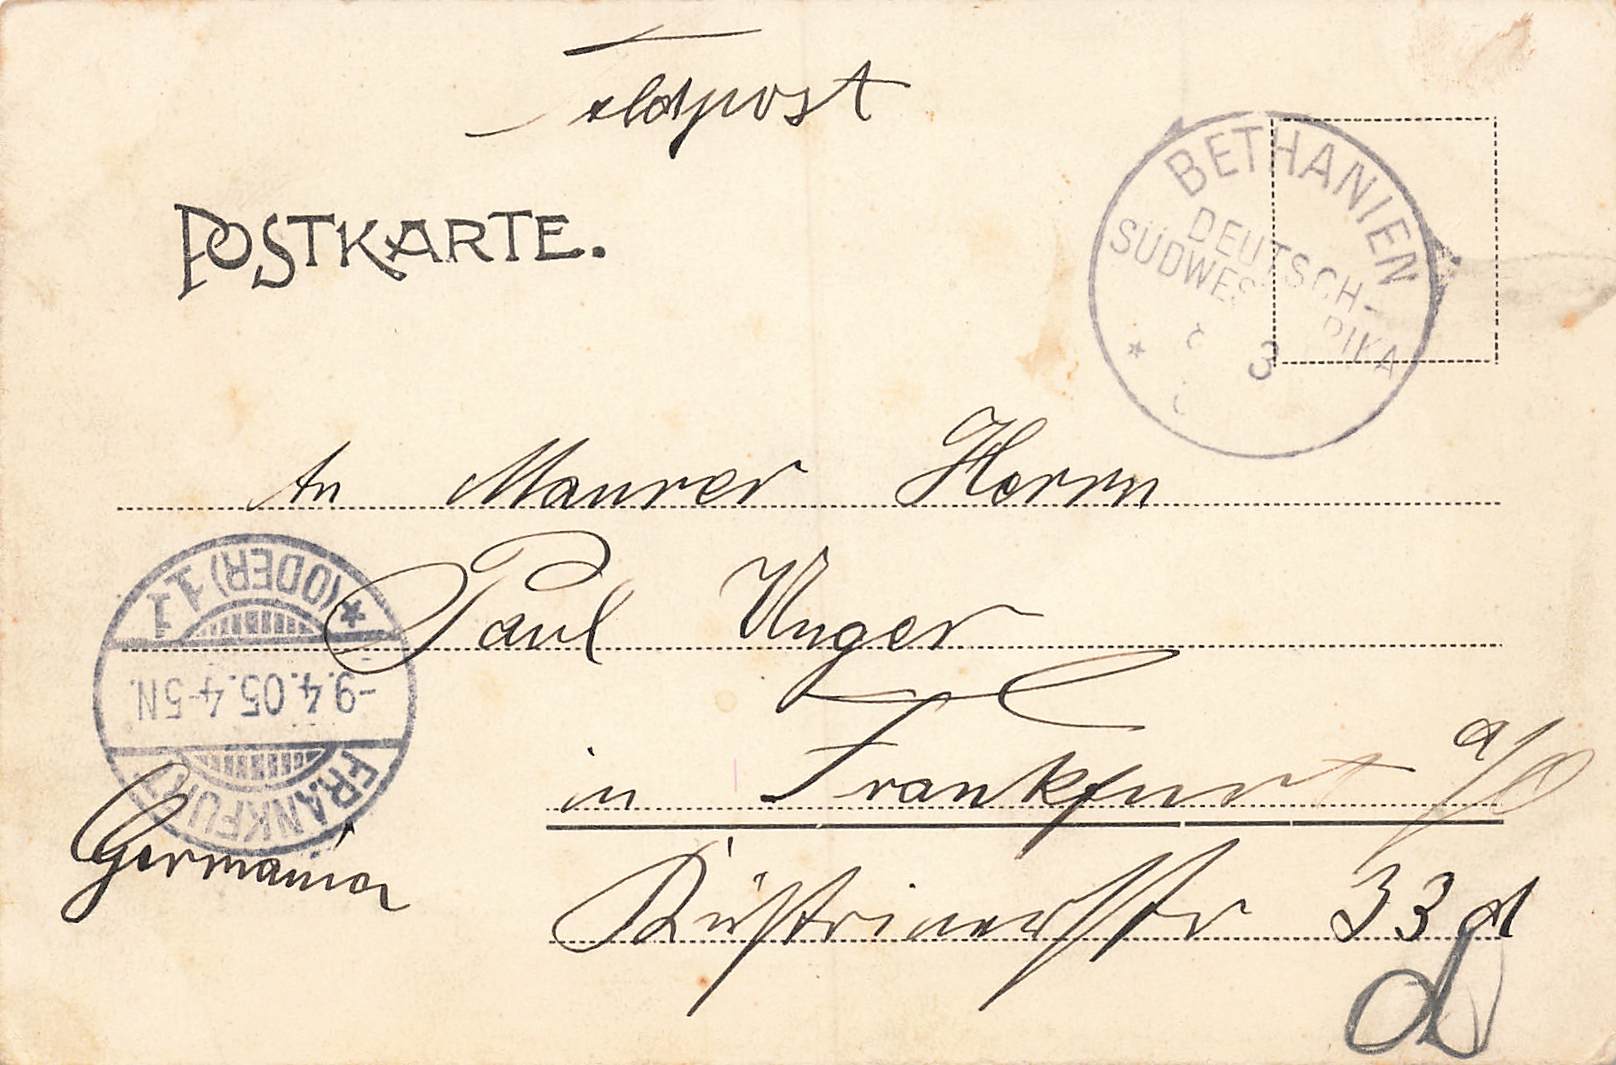 Feldpost
POSTKARTE.
BETHANIEN
DEUTSCH-
SÜDWES RIKA
3
An Maurer Herrn
Paul Unger
in Frankfurt a/O
Küstrinerstr 33 d
Germania
FRANKFURT
-9.4.05.4-5N.
* (ODER) 1